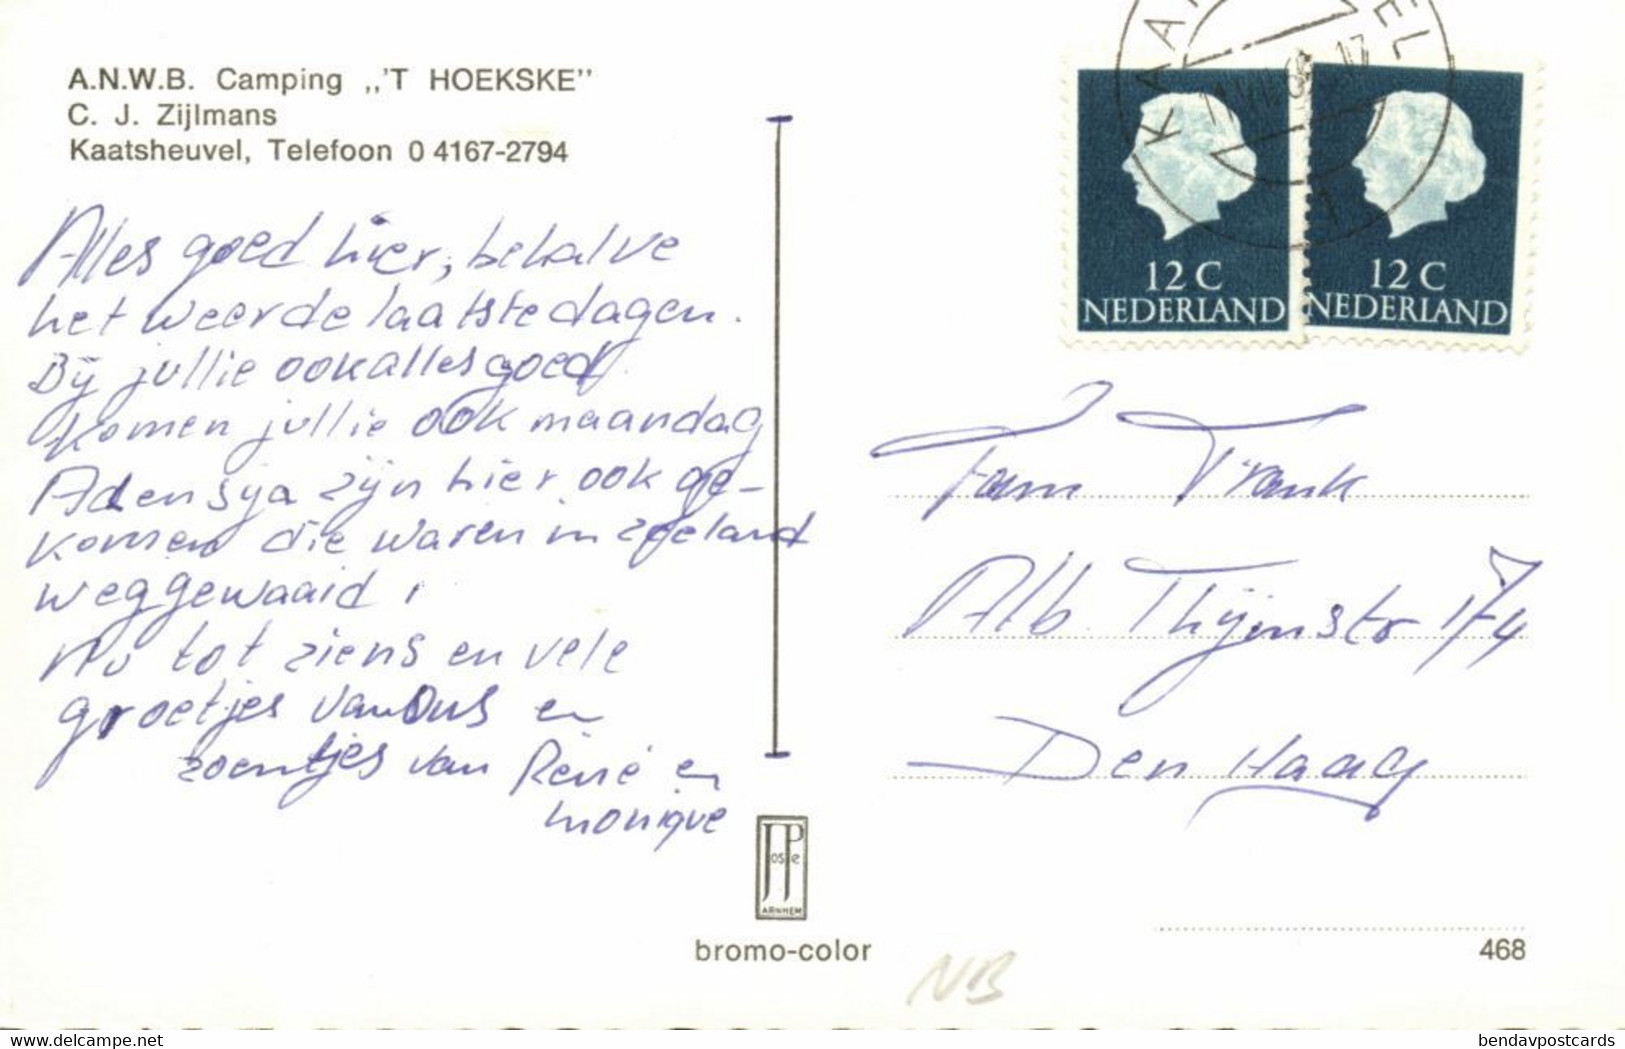 A.N.W.B. Camping ,,'T HOEKSKE’’
C. J. Zijlmans
Kaatsheuvel, Telefoon 0 4167-2794
Alles goed hier, behalve
het weer de laatste dagen.
Bij jullie ook alles goed
Komen jullie ook maandag
Ad en Sja zijn hier ook ge-
komen die waren in zeeland
weggewaaid!
Nu tot ziens en vele
groetjes van Ons en
zoentjes van René en
Monique
12 C
NEDERLAND
12 C
NEDERLAND
1
Fam Frank
Alb. Thijmstr 174
Den Haag
JosPe
ARNHEM
bromo-color
468
NB
delcampe.net
bendavpostcards